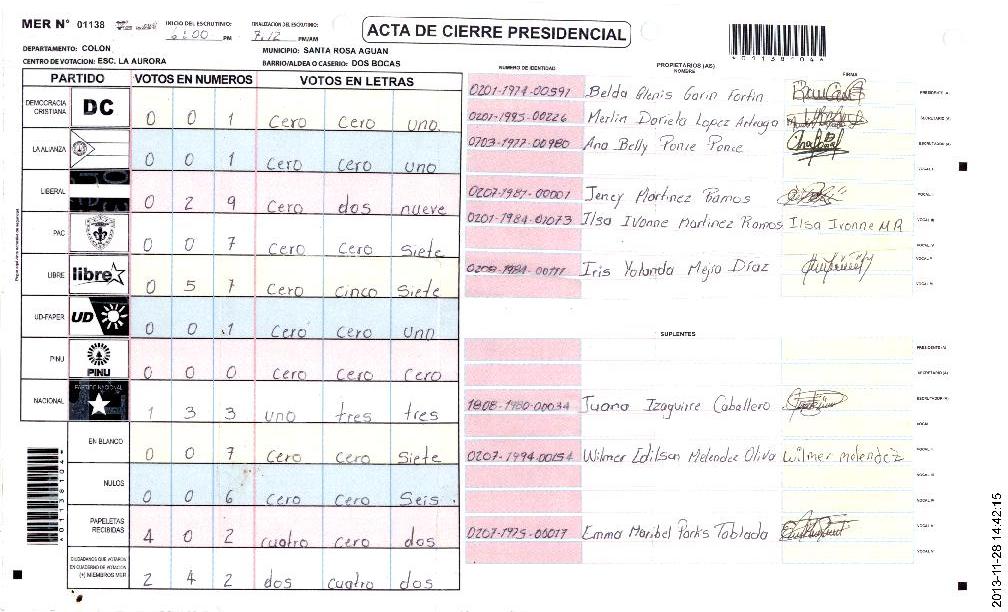 MER N° 01138
INICIO DEL ESCRUTINIO:
6:00 PM
FINALIZACION DEL ESCRUTINIO:
7:12 PM/AM
ACTA DE CIERRE PRESIDENCIAL
DEPARTAMENTO: COLON
MUNICIPIO: SANTA ROSA AGUAN
CENTRO DE VOTACION: ESC. LA AURORA
BARRIO/ALDEA O CASERIO: DOS BOCAS
PARTIDO VOTOS EN NUMEROS VOTOS EN LETRAS
DEMOCRACIA CRISTIANA DC 0 0 1 Cero Cero uno.
LA ALIANZA 0 0 1 Cero Cero uno
LIBERAL 0 2 9 Cero dos nueve
PAC 0 0 7 Cero Cero Siete
LIBRE libre 0 5 7 Cero cinco Siete
UD-FAPER UD 0 0 1 Cero Cero uno
PINU PINU 0 0 0 Cero Cero Cero
NACIONAL PARTIDO NACIONAL 1 3 3 uno tres tres
EN BLANCO 0 0 7 Cero Cero Siete
NULOS 0 0 6 Cero Cero Seis.
PAPELETAS RECIBIDAS 4 0 2 cuatro cero dos
CIUDADANOS QUE VOTARON EN CUADERNO DE VOTACION (+) MIEMBROS MER 2 4 2 dos cuatro dos
NUMERO DE IDENTIDAD PROPIETARIOS (AS) NOMBRE FIRMA
0201-1974-00591 Belda Glenis Garin Fortin PRESIDENTE (A)
0201-1995-00226 Merlin Dariela Lopez Arteaga SECRETARIO (A)
0703-1977-00980 Ana Belly Ponce Ponce ESCRUTADOR (A)
VOCAL I
0207-1987-00001 Jency Martinez Ramos VOCAL II
0201-1984-01073 Ilsa Ivonne Martinez Ramos Ilsa Ivonne M R VOCAL III
VOCAL IV
0209-1984-00777 Iris Yolanda Mejia Díaz VOCAL V
VOCAL VI
SUPLENTES
PRESIDENTE (A)
SECRETARIO (A)
1808-1980-00034 Juana Izaguirre Caballero ESCRUTADOR (A)
VOCAL I
0207-1994-00154 Wilmer Edilson Melendez Oliva Wilmer melendez VOCAL II
VOCAL III
VOCAL IV
0207-1975-00077 Emma Maribel Parks Tablada VOCAL V
VOCAL VI
*01138104*
2013-11-28 14:42:15